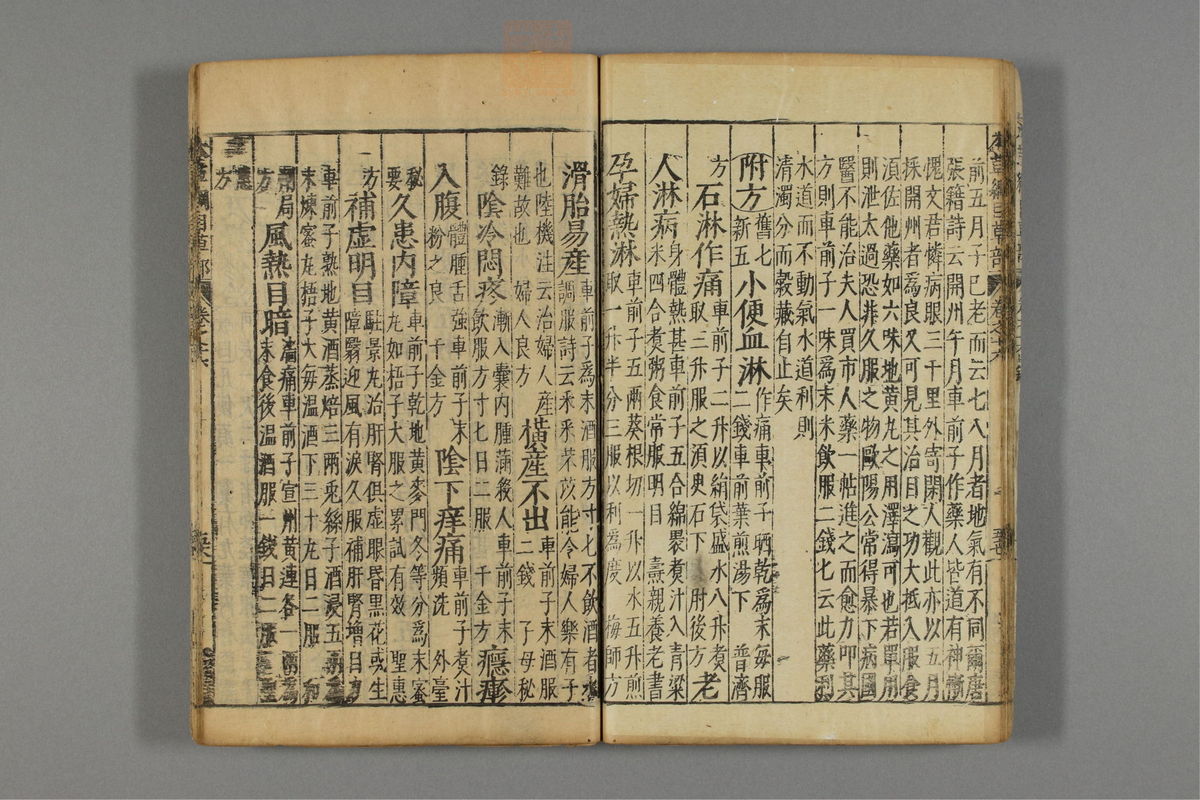 前五月子已老而云七八月者地氣有不同爾唐
張籍詩云開州午月車前子作藥人皆道有神驗
愧文君憐病眼三十里外寄閑人觀此亦以五月
採開州者為良又可見其治目之功大抵入服食
須佐他藥如六味地黃丸之用澤瀉可也若單用
則泄太過恐非久服之物歐陽公常得暴下病國
醫不能治夫人買市人藥一帖進之而愈力叩其
方則車前子一味為末米飲服二錢匕云此藥利
水道而不動氣水道利則
清濁分而穀藏有止矣
附方舊七新五小便血淋作痛車前子晒乾為末每服二錢車前葉煎湯下 普濟
方石淋作痛車前子二升以絹袋盛水八升煮取三升服之須臾石下 肘後方老
人淋病身體熱甚車前子五合綿裹煮汁入青粱米四合煮粥食常服明目 壽親養老書
孕婦熱淋車前子五兩葵根切一升以水五升煎取一升半分三服以利為度 梅師方
滑胎易産車前子為末酒服方寸匕不飲酒者水調服詩云采采芣苡能令婦人樂有子
也陸機注云治婦人産難故也 婦人良方橫産不出車前子末酒服二錢 子母秘
錄陰冷悶疼漸入囊內腫滿殺人車前子末飲服方寸匕日二服 千金方癮疹
入腹體腫舌強車前子末粉之良 千金方陰下痒痛車前子煮汁頻洗 外臺
秘要久患內障車前子乾地黃麥門冬等分為末蜜丸如梧子大服之累試有效 聖惠
方補虛明目駐景丸治肝腎俱虛眼昏黑花或生障翳迎風有淚久服補肝腎增目力
車前子熟地黃酒蒸焙三兩兎絲子酒浸五兩為末煉蜜丸梧子大每溫酒下三十丸日二服 和
劑局方風熱目暗澀痛車前子宣州黃連各一兩為末食後溫酒服一錢日二服
聖惠方
本草綱目草部 卷之十六